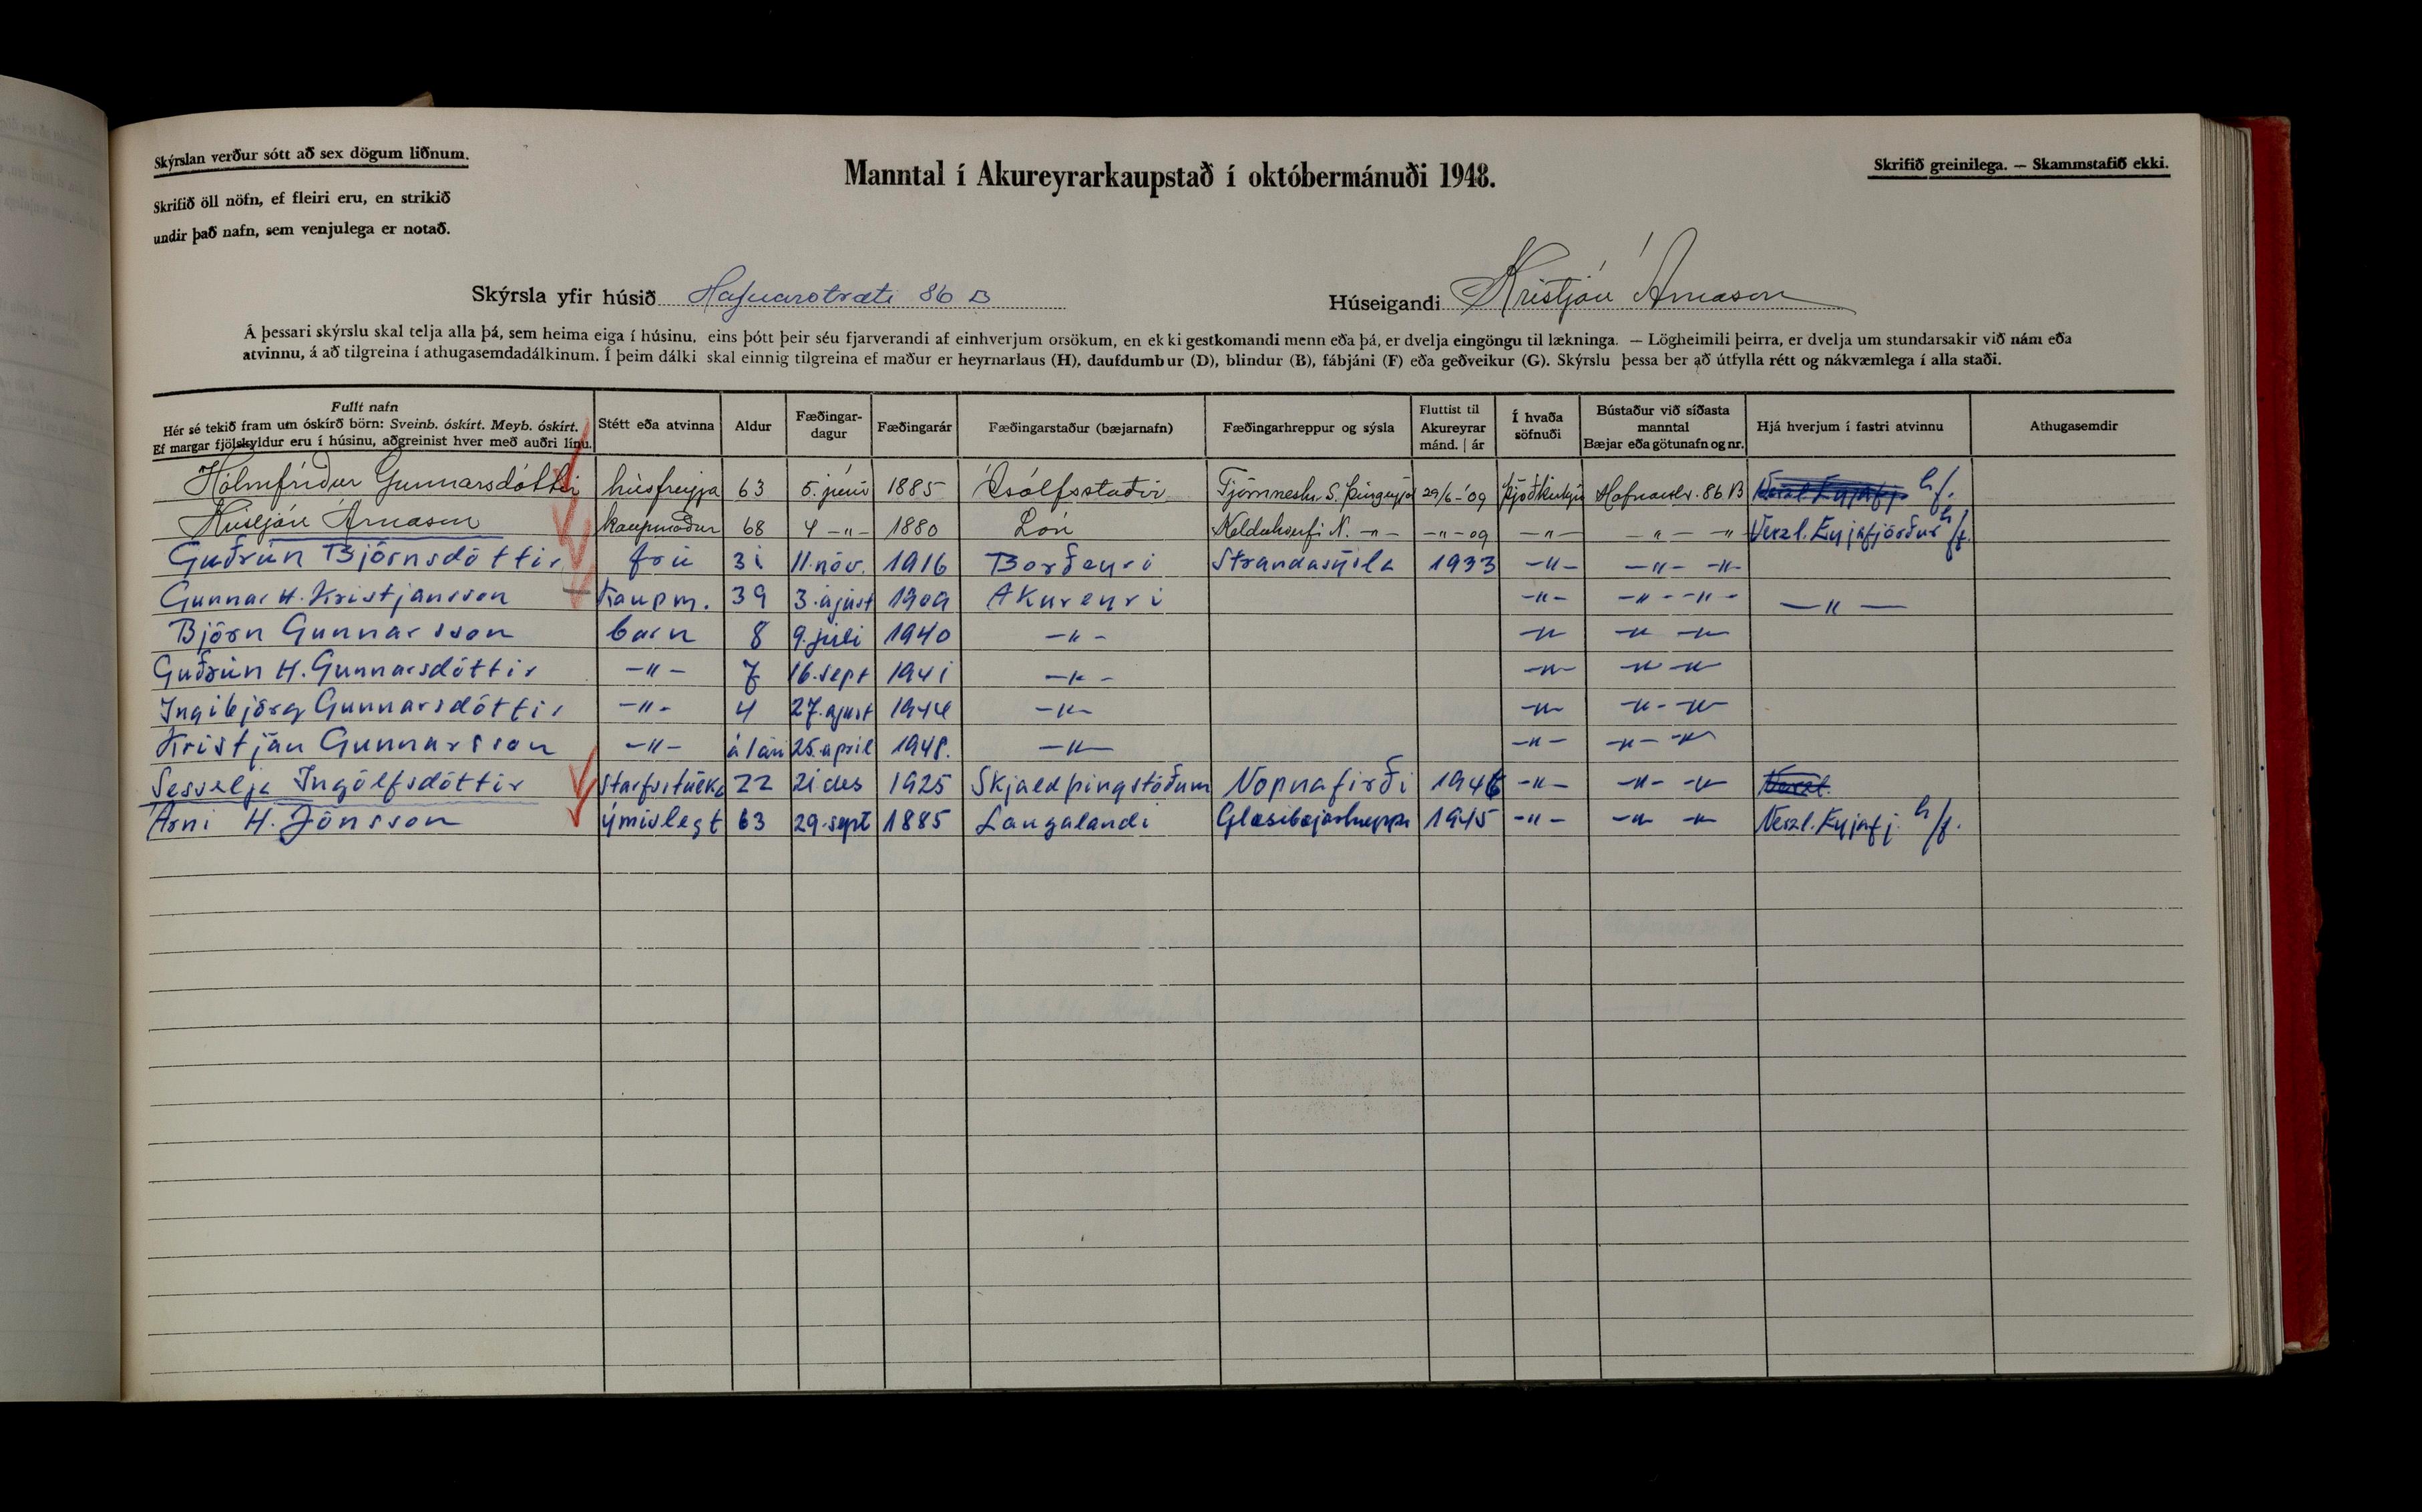 Skýrslan verður sótt að sex dögum liðnum.
Skrifið öll nöfn, ef fleiri eru, en strikið
undir það nafn, sem venjulega er notað.
Manntal í Akureyrarkaupstað í októbermánuði 1948.
Skrifið greinilega. — Skammstafið ekki.
Skýrsla yfir húsið Hafnarstræti 86 B
Húseigandi Kristján Árnason
Á þessari skýrslu skal telja alla þá, sem heima eiga í húsinu, eins þótt þeir séu fjarverandi af einhverjum orsökum, en ekki gestkomandi menn eða þá, er dvelja eingöngu til lækninga. — Lögheimili þeirra, er dvelja um stundarsakir við nám eða
atvinnu, á að tilgreina í athugasemdadálkinum. Í þeim dálki skal einnig tilgreina ef maður er heyrnarlaus (H), daufdumbur (D), blindur (B), fábjáni (F) eða geðveikur (G). Skýrslu þessa ber að útfylla rétt og nákvæmlega í alla staði.
Fullt nafn
Hér sé tekið fram um óskírð börn: Sveinb. óskírt. Meyb. óskírt.
Ef margar fjölskyldur eru í húsinu, aðgreinist hver með auðri línu.
Stétt eða atvinna
Aldur
Fæðingar-
dagur
Fæðingarár
Fæðingarstaður (bæjarnafn)
Fæðingarhreppur og sýsla
Fluttist til
Akureyrar
mánd. | ár
Í hvaða
söfnuði
Bústaður við síðasta
manntal
Bæjar eða götunafn og nr.
Hjá hverjum í fastri atvinnu
Athugasemdir
Hólmfríður Gunnarsdóttir húsfreyja 63 5. júní 1885 Ísólfsstaðir Tjörneshr. S. Þingeyj 29/6-'09 Þjóðkirkju Hafnarstr. 86 B Verzl. Eyjafj. h/f.
Kristján Árnason kaupmaður 68 4 -"- 1880 Lón Kelduhverfi N. -"- -"-09 -"- -"- -"- Verzl. Eyjafjörður h/f.
Guðrún Björnsdóttir frú 31 11. nóv. 1916 Borðeyri Strandasýsla 1933 -"- -"- -"-
Gunnar H. Kristjánsson kaupm. 39 3. ágúst 1909 Akureyri -"- -"- -"- -"-
Björn Gunnarsson barn 8 9. júlí 1940 -"- -"- -"- -"-
Guðrún H. Gunnarsdóttir -"- 7 16. sept 1941 -"- -"- -"- -"-
Ingibjörg Gunnarsdóttir -"- 4 27. ágúst 1944 -"- -"- -"- -"-
Kristján Gunnarsson -"- á 1 ári 25. apríl 1948. -"- -"- -"- -"-
Sesselja Ingólfsdóttir Starfsstúlka 22 21. des 1925 Skjaldþingstöðum Vopnafirði 1946 -"- -"- -"- Verzl.
Árni H. Jónsson ýmislegt 63 29. sept 1885 Langalandi Glæsibæjarhreppi 1945 -"- -"- -"- Verzl. Eyjafj. h/f.